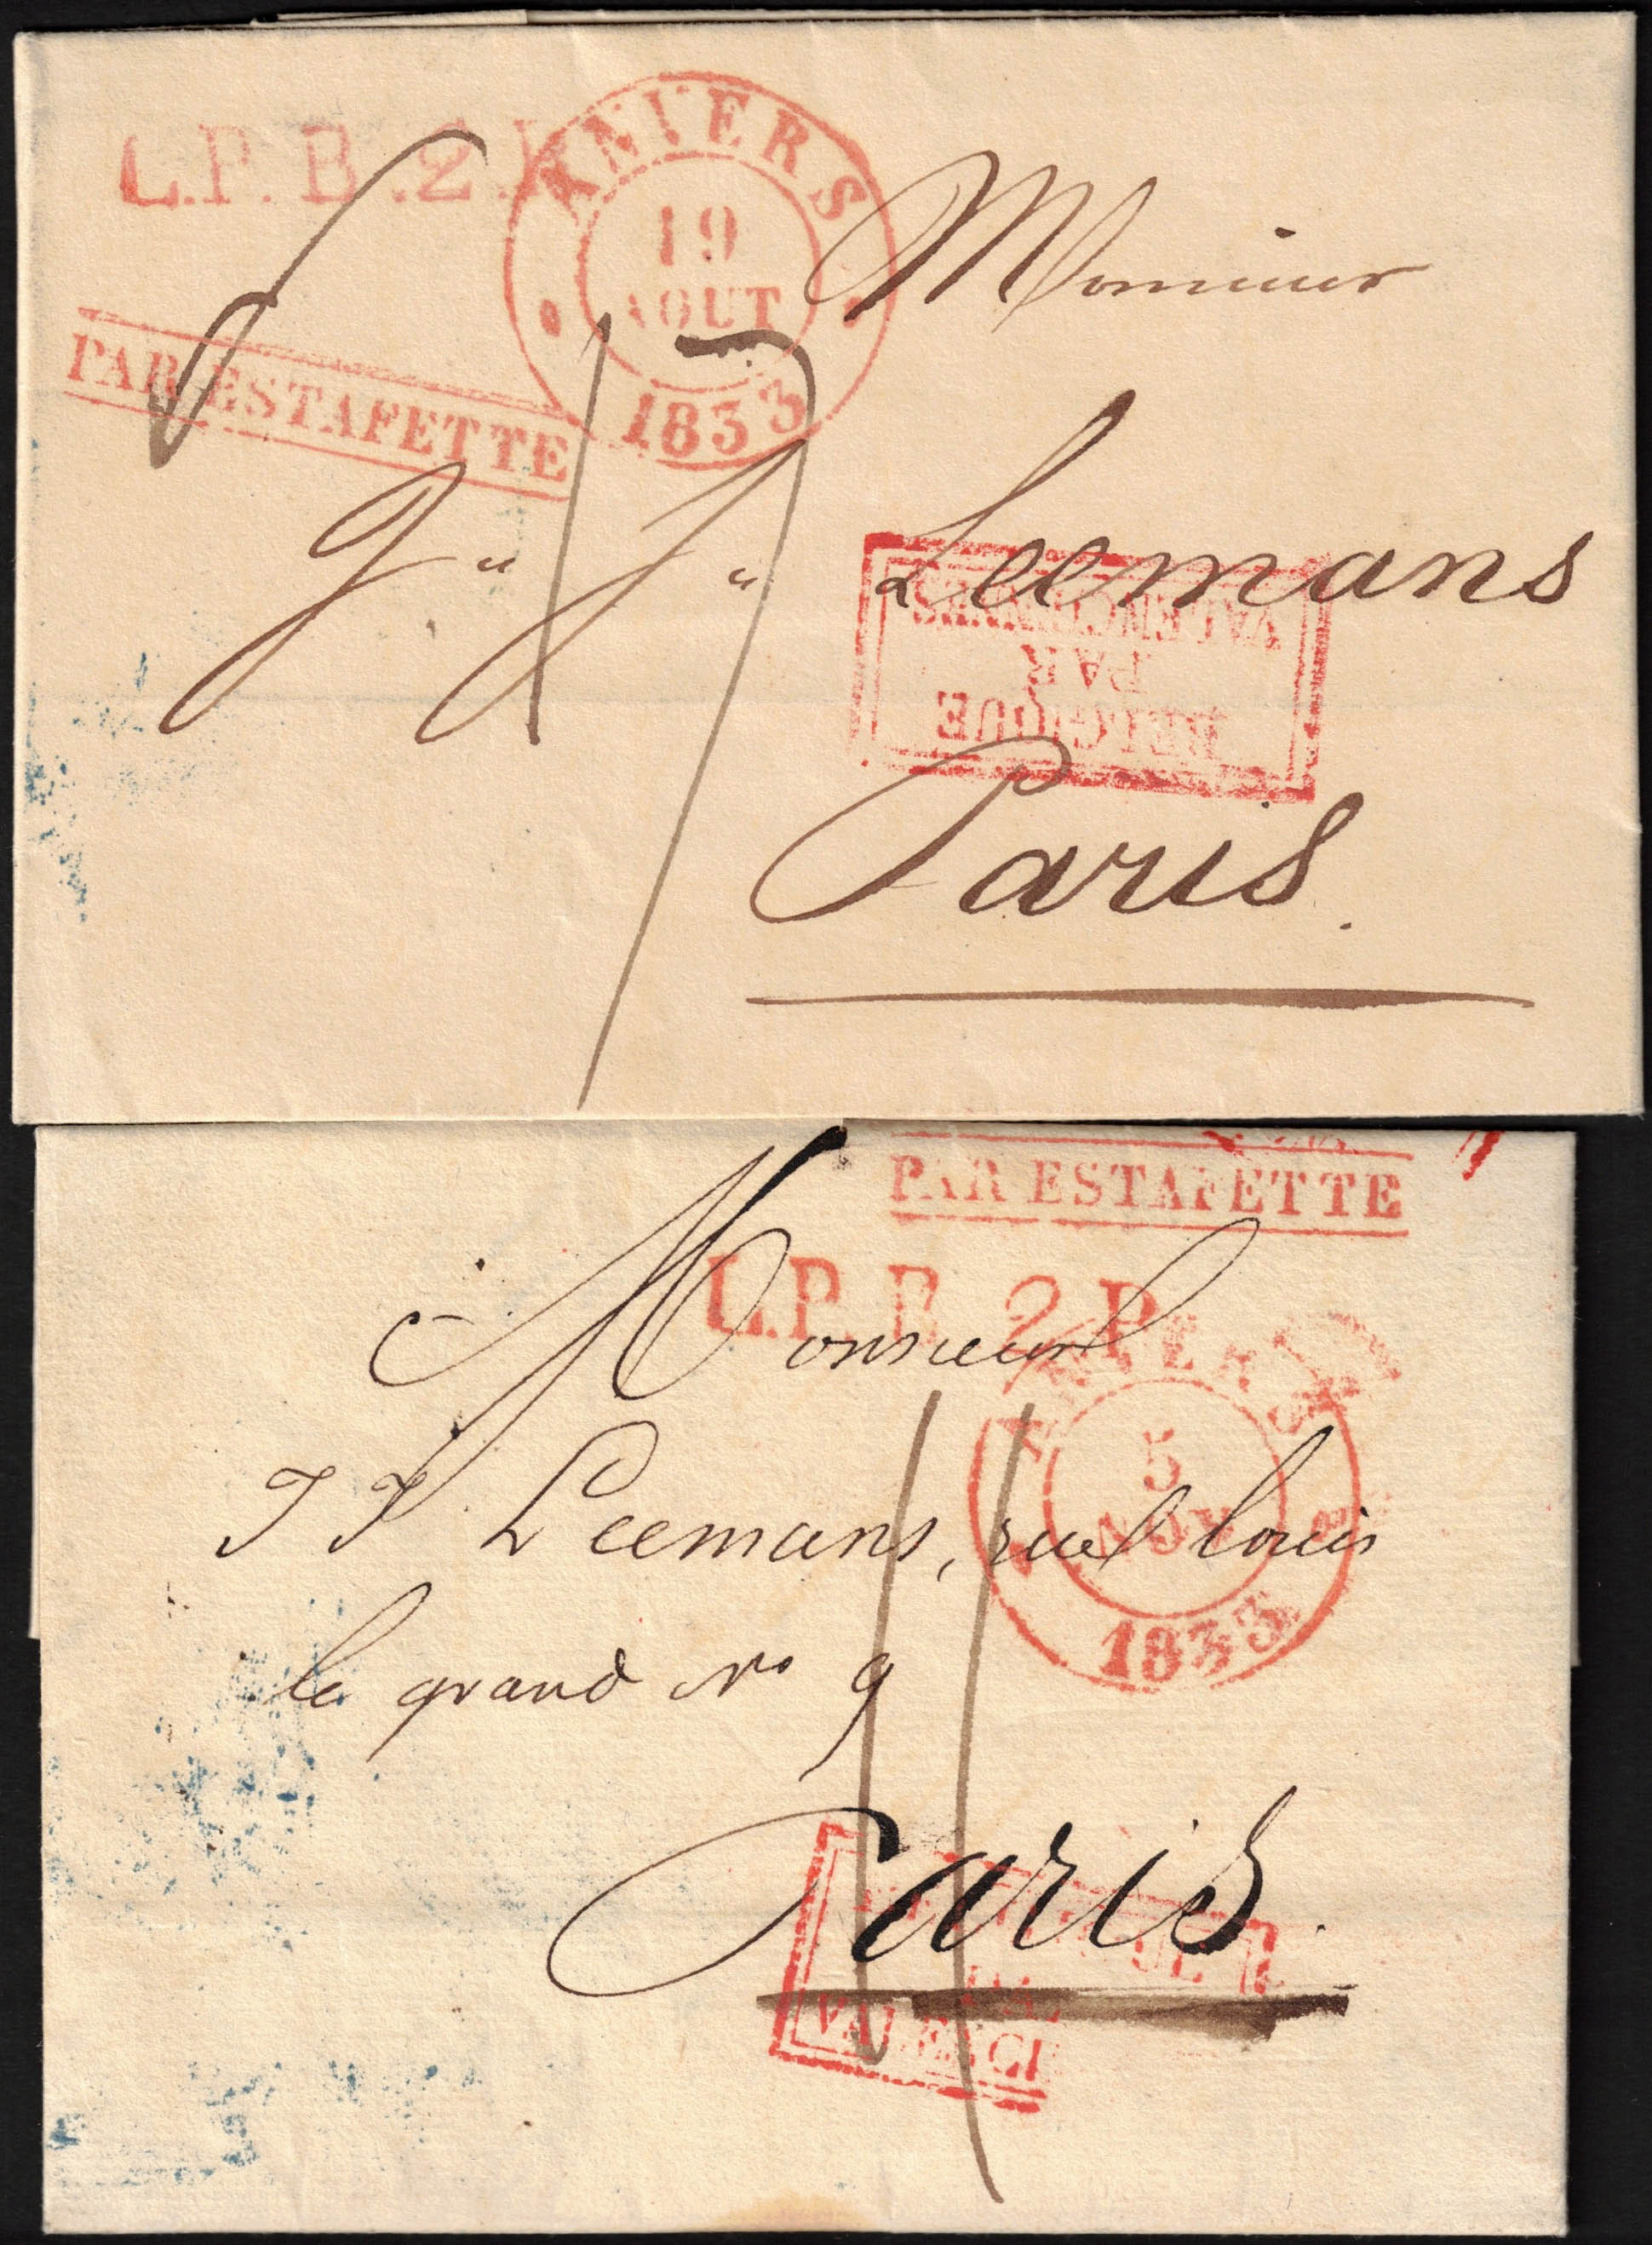 L.P.B.2.R
ANVERS
19
AOUT
1833
PAR ESTAFETTE
17
Monsieur
J" J" Leemans
BELGIQUE
PAR
VALENCIENNES
Paris.
PAR ESTAFETTE
L.P.B. 2.R
ANVERS
5
NOV
1833
Monsieur
J J. Leemans, rue louis
le grand No 9
11
Paris.
BELGIQUE
PAR
VALENCI